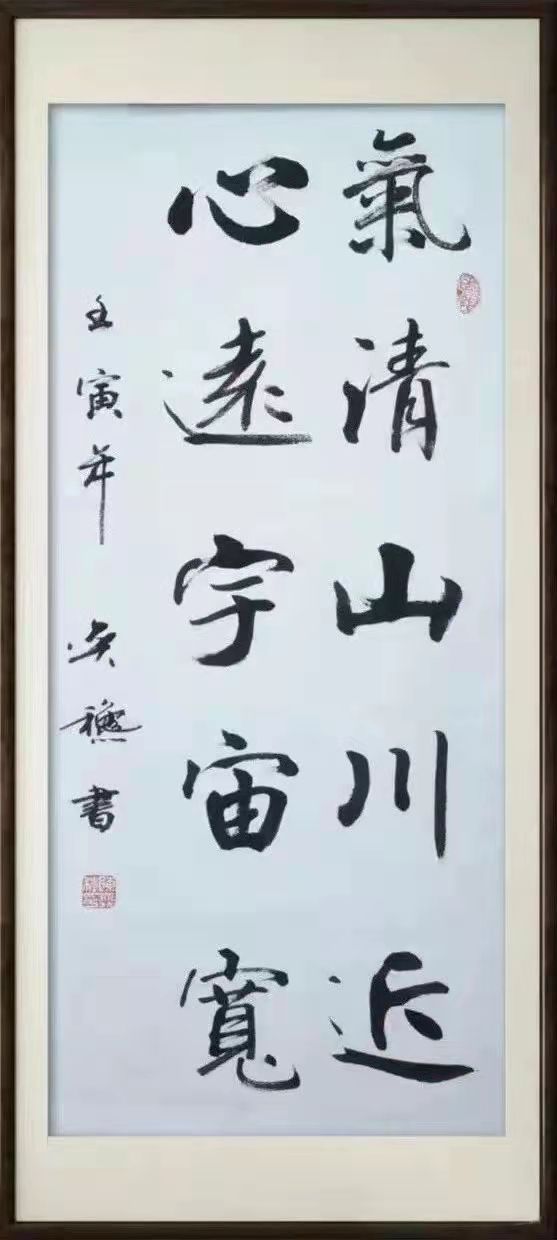 氣清山川近
心遠宇宙寬
壬寅年 吳穗書